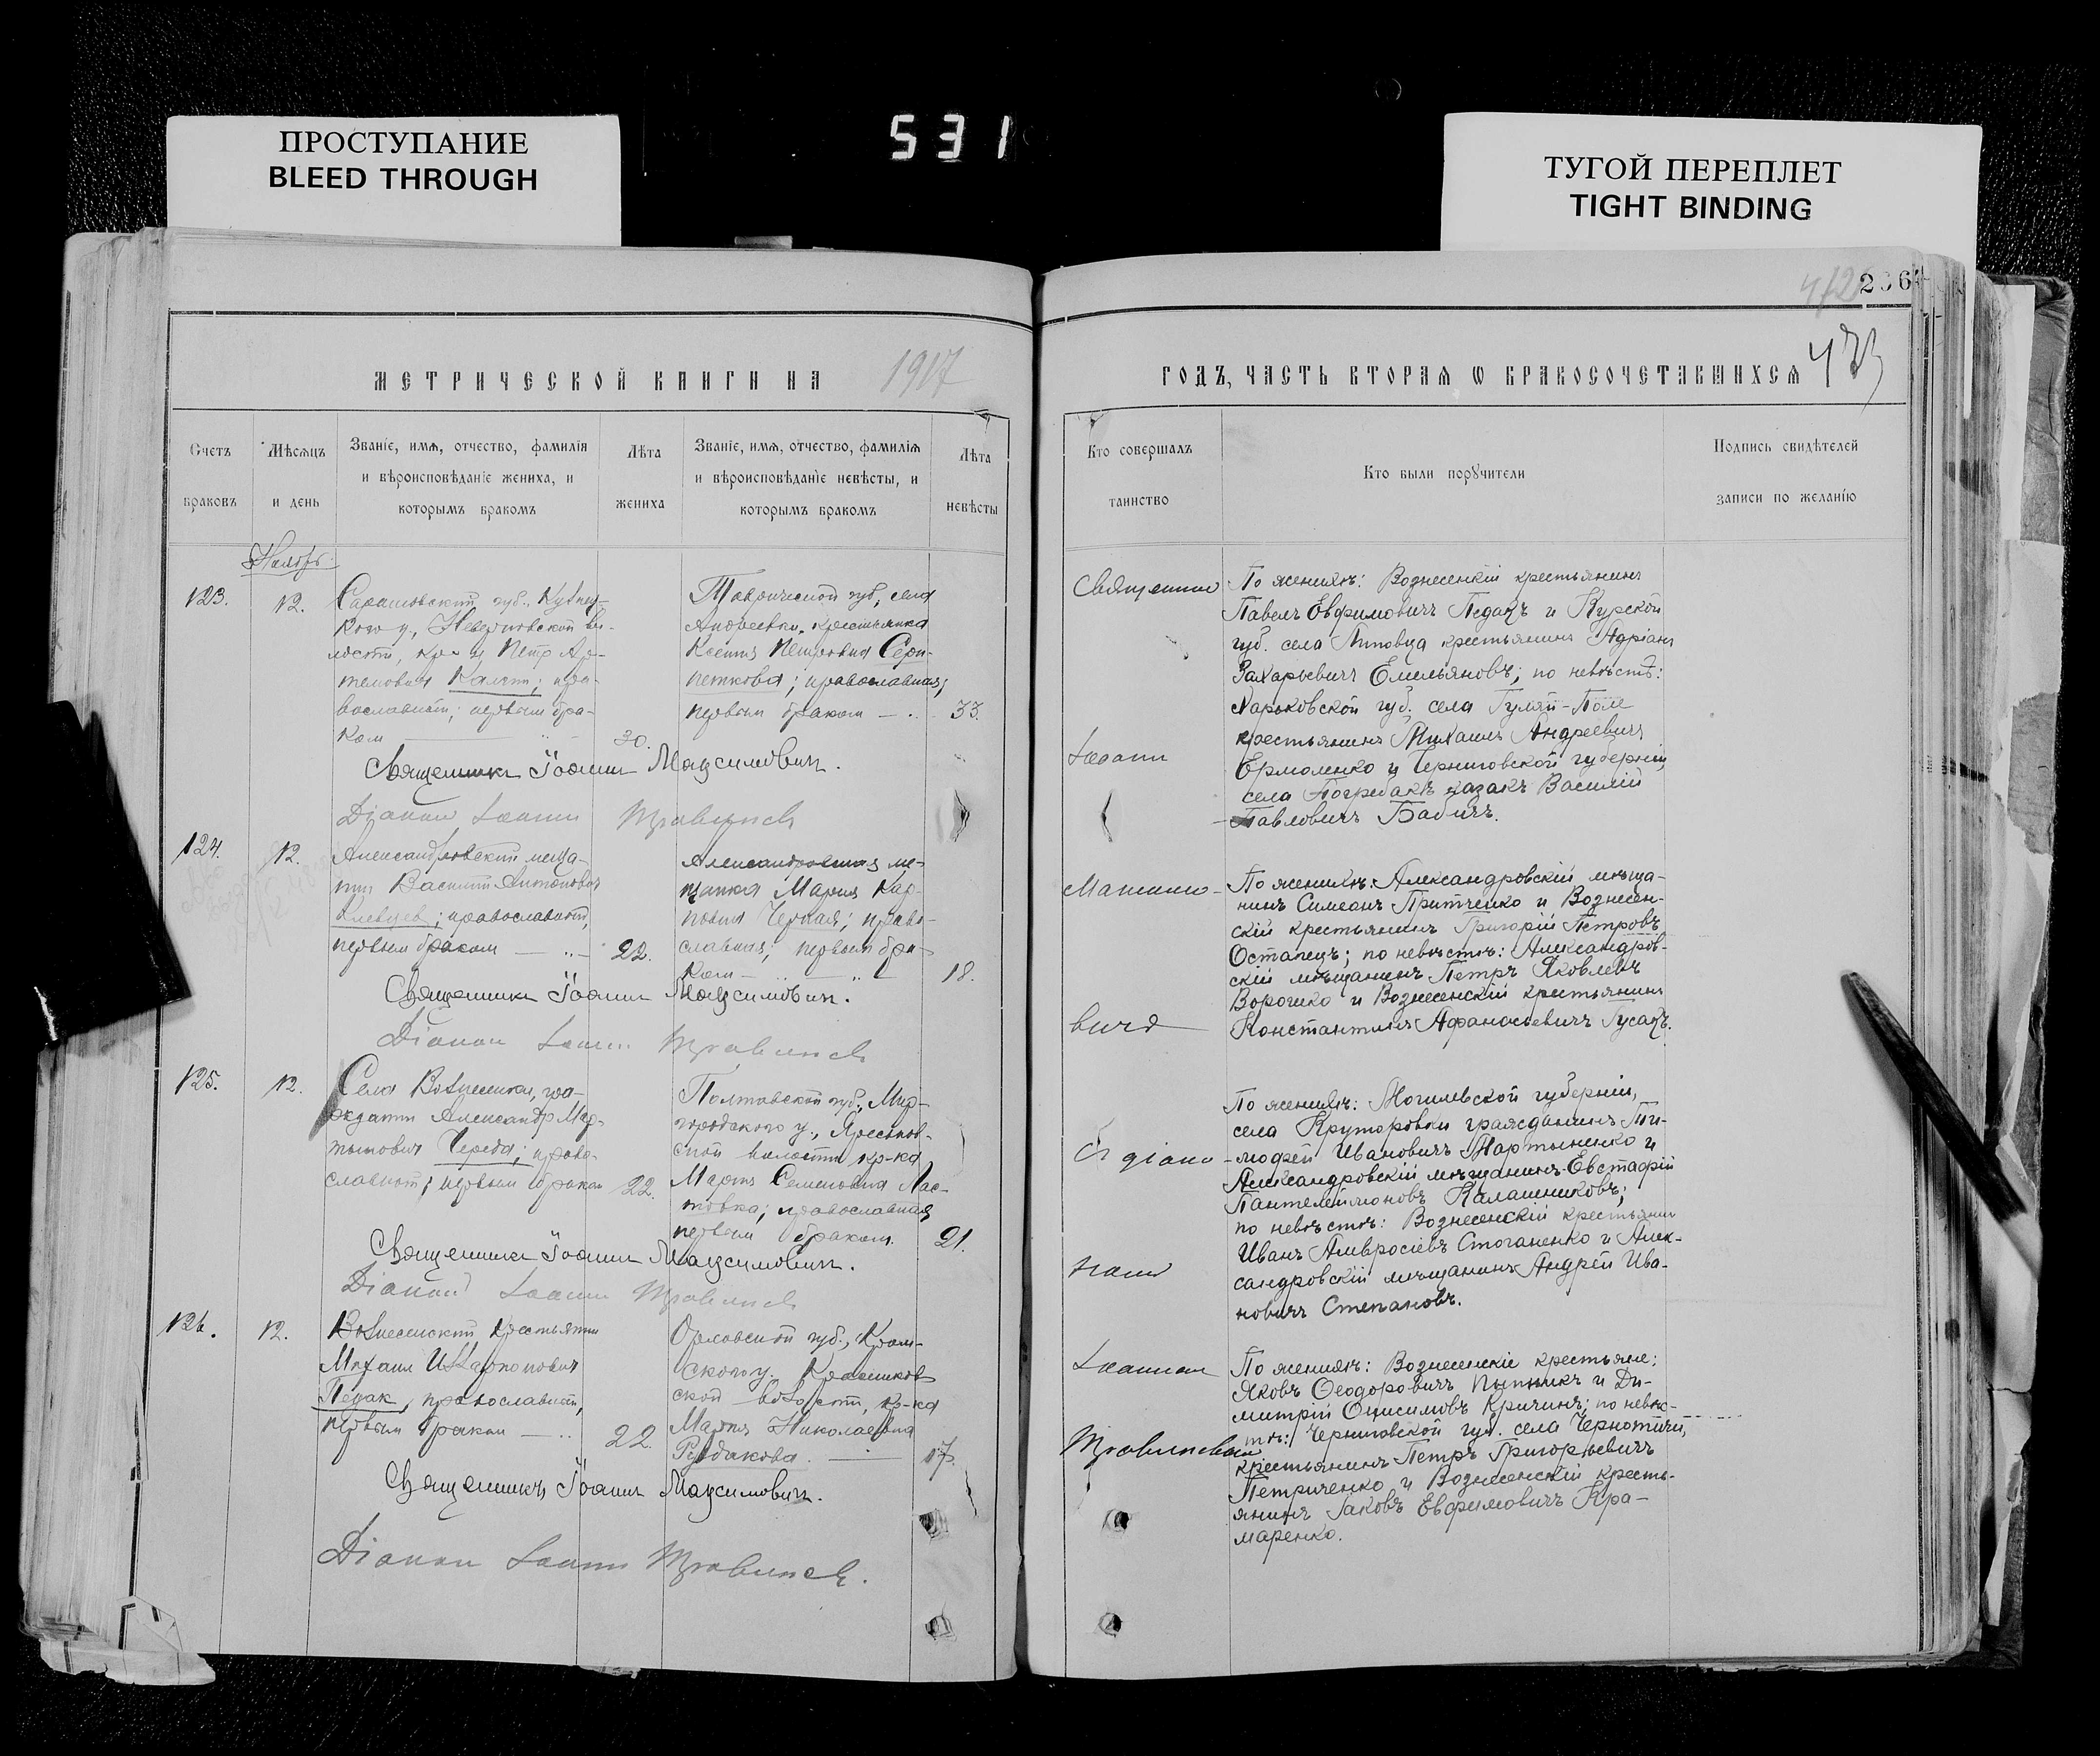 ПРОСТУПАНИЕ
BLEED THROUGH
531
ТУГОЙ ПЕРЕПЛЕТ
TIGHT BINDING
206
473
МЕТРИЧЕСКОЙ КНИГИ НА 1917
ГОДЪ, ЧАСТЬ ВТОРАЯ Ѡ БРАКОСОЧЕТАВШИХСЯ
Счетъ браковъ
Мѣсяцъ и день
Званіе, имя, отчество, фамилія
и вѣроисповѣданіе жениха, и
которымъ бракомъ
Лѣта жениха
Званіе, имя, отчество, фамилія
и вѣроисповѣданіе невѣсты, и
которымъ бракомъ
Лѣта невѣсты
Кто совершалъ таинство
Кто были поручители
Подпись свидѣтелей
записи по желанію
Ноябрь
123.
12.
Саратовской губ., Кузнец-
кого у.,
лости, Петр Ар-
темович пра-
вославный; первым бра-
ком
30.
Таврической губ., села
Андреевки, крестьянка
Ксения Петровна Сери-
петкова; православная;
первым браком
33.
Священник Іоанн Максимович.
Діакон Іоанн
Священник
Іоанн
По женихѣ: Вознесенскій крестьянинъ
Павелъ Евфимовичъ Педакъ и Курской
губ. села крестьянинъ Адріанъ
Захарьевичъ Емельяновъ; по невѣстѣ:
Харьковской губ. села Гуляй-Поле
крестьянинъ Михаилъ Андреевичъ
Ермоленко и Черниговской губерніи,
села Погребакъ казакъ Василій
Павловичъ Бабичъ.
124.
12.
Александровский меща-
нин Василий Антонович
Клевцев; православный,
первым браком
22.
Александровская ме-
щанка Мария Кар-
повна Черная; право-
славная; первым бра-
ком
18.
Священник Іоанн Максимович.
Діакон Іоанн
По женихѣ: Александровскій мѣща-
нинъ Симеонъ Притченко и Вознесен-
скій крестьянинъ Григорій Петровъ
Остапецъ; по невѣстѣ: Александров-
скій мѣщанинъ Петръ Яковлевъ
Ворошко и Вознесенскій крестьянинъ
Константинъ Афанасьевичъ Гусакъ.
125.
12.
Села Вознесенки, гра-
жданин Александр Мар-
тынович Череда; право-
славный; первым браком
22.
Полтавской губ., Мир-
городского у., Яресков-
ской волости кр-ка
Мария Семеновна Лас-
товка; православная,
первым браком.
21.
Священник Іоанн Максимович.
Діакон Іоанн
С діако-
ном
По женихѣ: Могилевской губерніи,
села Круторовки гражданинъ Ти-
мофей Ивановичъ Мартыненко и
Александровскій мѣщанинъ Евстафій
Пантелеймоновъ Калашниковъ;
по невѣстѣ: Вознесенскій крестьянин
Иванъ Амвросіевъ Стоганенко и Алек-
сандровскій мѣщанинъ Андрей Ива-
новичъ Степановъ.
126.
12.
Вознесенский крестьянин
Михаил Илларионович
Педак, православный,
первым браком
22.
Орловской губ., Кром-
ского у.
ской волости, кр-ка
Мария Николаевна
Рудакова.
17.
Священникъ Іоанн Максимович.
Діакон Іоанн
Іоанном
По женихѣ: Вознесенскіе крестьяне:
Яковъ Ѳеодоровичъ и Ди-
митрій Онисимовъ Кричинъ; по невѣс-
тѣ: Черниговской губ. села Чернотичи,
крестьянинъ Петръ Григорьевичъ
Петриченко и Вознесенскій кресть-
янинъ Іаковъ Евфимовичъ Кра-
маренко.